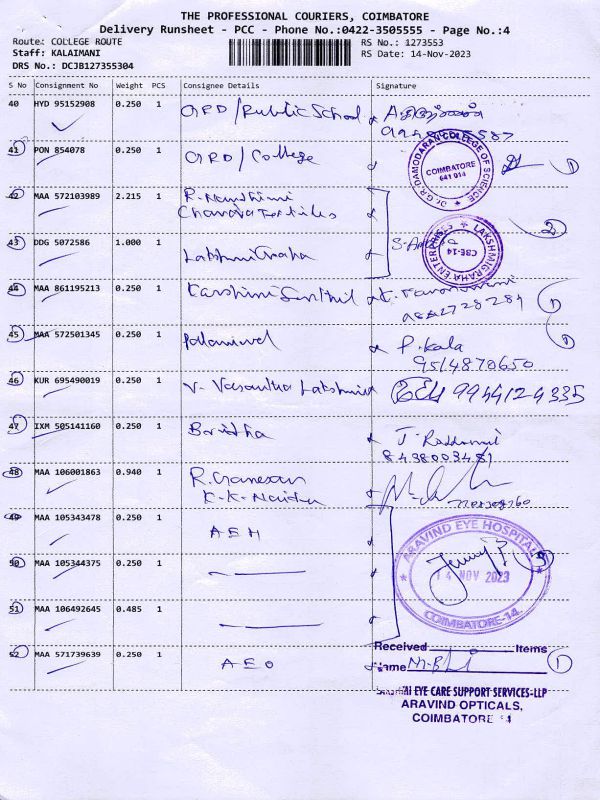 THE PROFESSIONAL COURIERS, COIMBATORE
Delivery Runsheet - PCC - Phone No.:0422-3505555 - Page No.:4
Route: COLLEGE ROUTE
Staff: KALAIMANI
DRS No.: DCJB127355304
RS No.: 1273553
RS Date: 14-Nov-2023
S No Consignment No Weight PCS Consignee Details Signature
40 HYD 95152908 0.250 1 GRD/Public School
41 PON 854078 0.250 1 GRD/College
Dr. G.R. DAMODARAN COLLEGE OF SCIENCE
COIMBATORE
641 014
42 MAA 572103989 2.215 1 R. Nandhini
43 DDG 5072586 1.000 1 Lakshmi Graha
LAKSHMIGRAHA ENTERPRISES
CBE-14
44 MAA 861195213 0.250 1
45 MAA 572501345 0.250 1 Palanivel P. Kala
9514870650
46 KUR 695490019 0.250 1 V. Vasantha Lakshmi 9944124335
47 IXM 505141160 0.250 1
8438003481
48 MAA 106001863 0.940 1 R. Ganesan
K.K. Naidu
49 MAA 105343478 0.250 1 AEH
50 MAA 105344375 0.250 1
ARAVIND EYE HOSPITAL
14 NOV 2023
COIMBATORE-14.
51 MAA 106492645 0.485 1
52 MAA 571739639 0.250 1 AEO
Received Items
Name
EYE CARE SUPPORT SERVICES-LLP
ARAVIND OPTICALS,
COIMBATORE